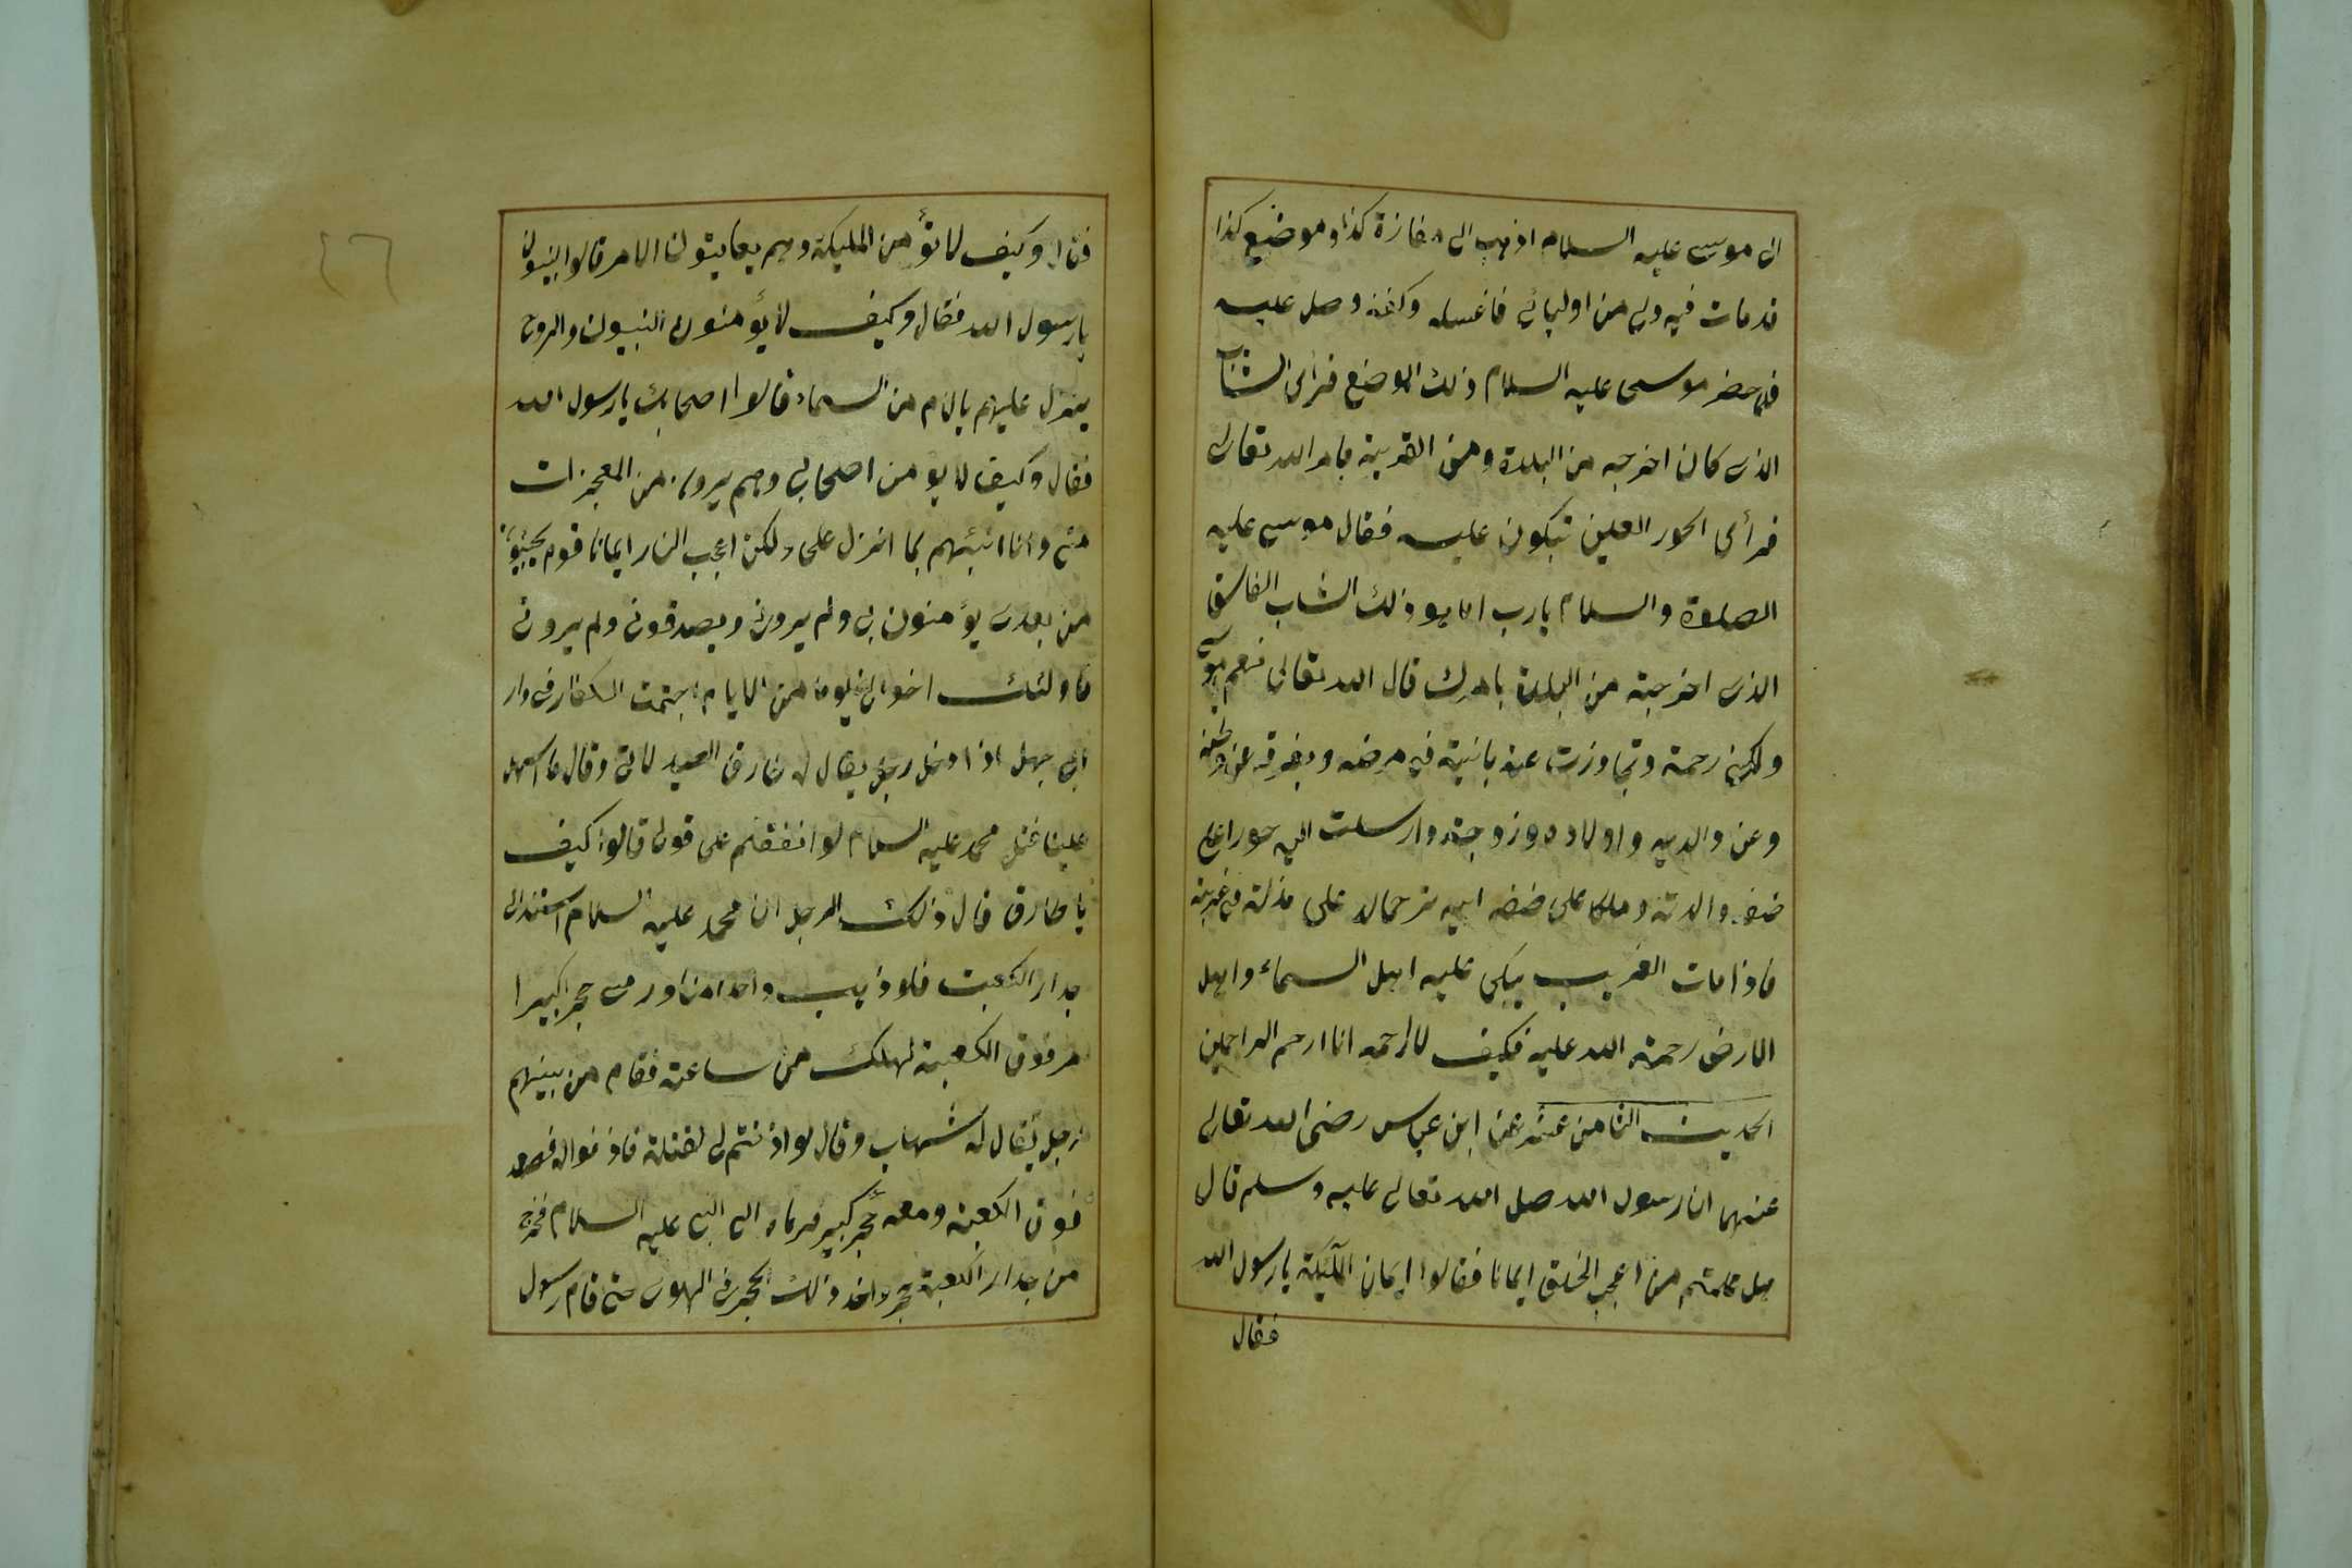 الى موسى عليه السلام اذهب الى مفازة كذا وموضع كذا
قدمات فيه ولى من اوليائى فاغسله وكفنه وصل عليه
فلما حضر موسى عليه السلام ذلك الموضع فرأى الشاب
الذى كان اخرجه من البلدة ومن القرية بامر الله تعالى
فرأى الحور العين تبكون عليه فقال موسى عليه
الصلوة والسلام يارب اما هو ذلك الشاب الفاسق
الذى اخرجته من البلدة بامرك قال الله تعالى نعم يا موسى
ولكنى رحمته وتجاوزت عنه بانيته فى مرضه وبفرقته عن وطنه
وعن والديه واولاده وزوجته وارسلت اليه حورا على
صفة والدته وملكا على صفة ابيه ترحما له على مذلته فى غربته
فاذا مات الغريب يبكى عليه اهل السماء واهل
الارض رحمة الله عليه فكيف لا ارحمه انا ارحم الراحمين
الحديث الثامن عشر عن ابن عباس رضى الله تعالى
عنهما ان رسول الله صل الله تعالى عليه وسلم قال
هل علمتم من اعجب الخلق ايمانا فقالوا ايمان الملئكة يارسول الله
فقال
فقال وكيف لا تؤمن المليكة وهم يعاينون الامر قالوا النبيون
يارسول الله فقال وكيف لا يؤمنون النبيون والروح
ينزل عليهم بالام من السماء قالوا اصحابك يارسول الله
فقال وكيف لا يومن اصحابى وهم يرون من المعجزات
منى وانا انبئهم بما انزل على ولكن اعجب الناس ايمانا قوم يجيئون
من بعدى يؤمنون بى ولم يرونى ويصدقونى ولم يرونى
فاولئك اخوانى يوما من الايام اجتمعت الكفار فى دار
ابى جهل اذا دخل رجل يقال له طارق الصيدلانى وقال ما اسهل
علينا قتل محمد عليه السلام لو اتفقتم على قولى قالوا كيف
يا طارق قال ذلك الرجل ان محمد عليه السلام استند الى
جدار الكعبت فلو ذهب واحد منا ورمى حجرا كبيرا
من فوق الكعبة لهلك من ساعته فقام من بينهم
رجل يقال له شهاب وقال لو اذنتم لى لقتلته فاذنوا له فصعد
فوق الكعبة ومعه حجر كبير فرماه الى النبى عليه السلام فخرج
من جدار الكعبة حجر واخذ ذلك الحجر فى الهوى حتى قام رسول